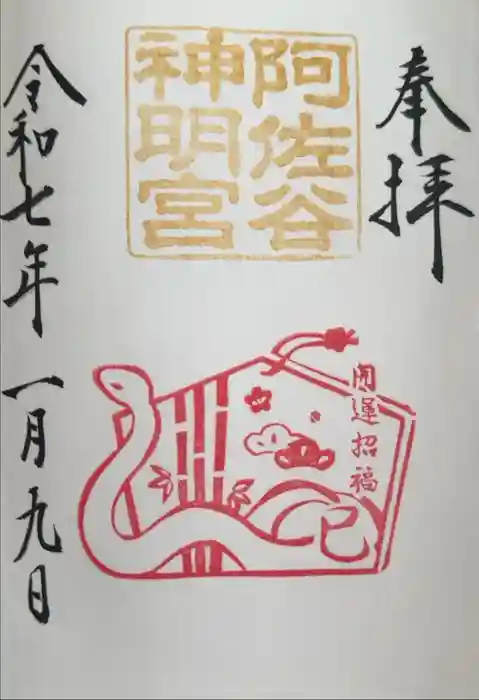 奉拝
阿佐谷
神明宮
開運招福
巳
令和七年一月九日